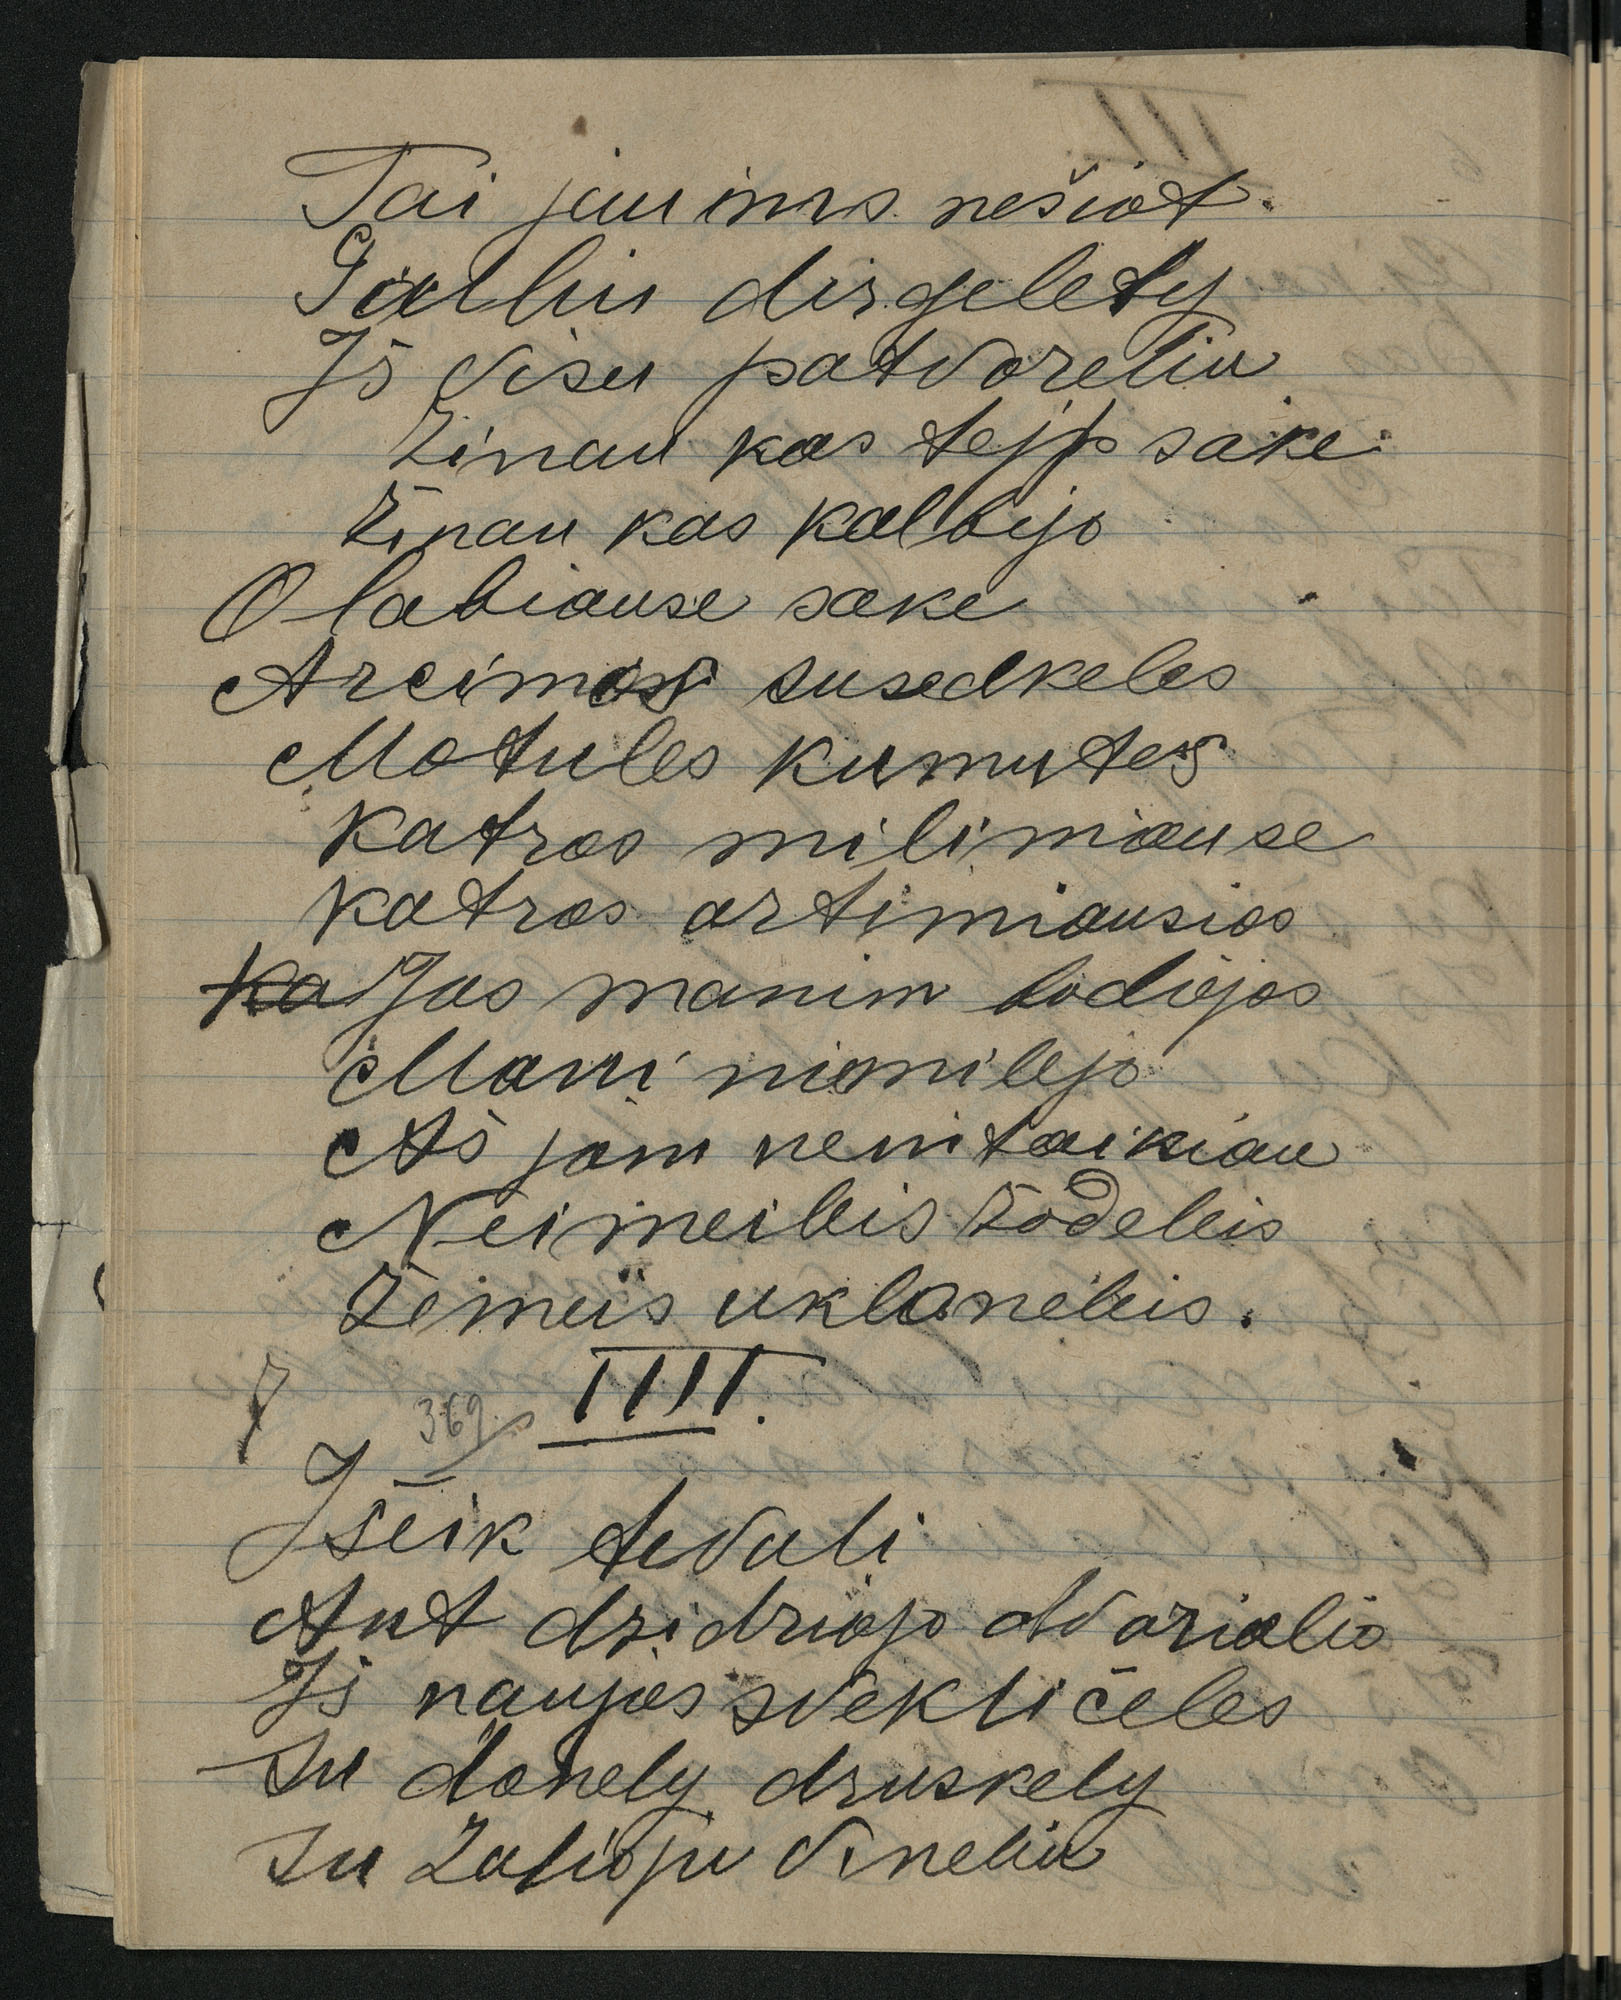 Tai jau ims nešiot.
Gailiu dirgelety
Iš visu patvoreliu
Žinau kas tejp sake
Žinau kas kalbejo
O labiause sake
Arcimos susedkeles
Motules kumutes
Katros milimiause
Katros artimiausios
Ka Jos manim bodiejos
Mani niamilejo
Aš jom nenitaikiau
Nei meileis žodeleis
Žemeis uklaneleis.
7 369 IIII.
Išeik tevuli
Ant dzidziojo dvorialio
Iš naujos svekličeles
Su donely druskely
Su žalioju vineliu